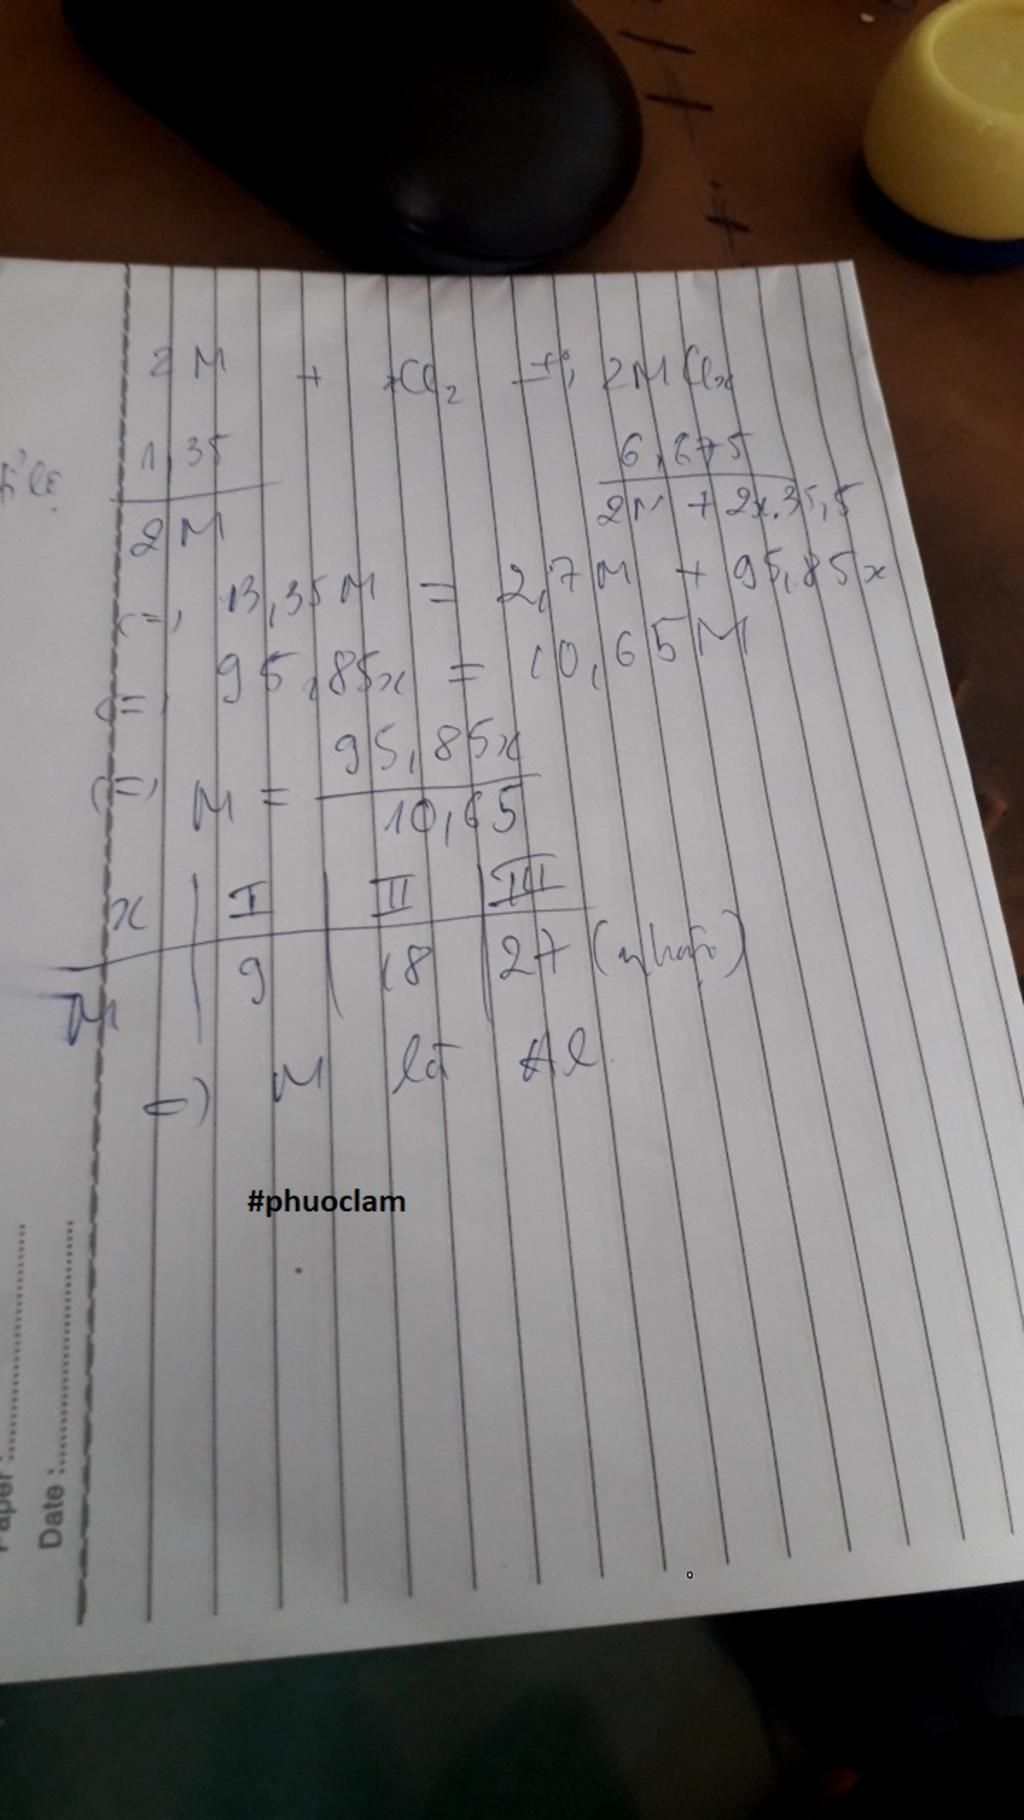 2M + xCl₂ —t°→ 2MClx
Tỉ lệ: 1,35/2M 6,675/(2M + 2x.35,5)
<=> 13,35M = 2,7M + 95,85x
<=> 95,85x = 10,65M
<=> M = 95,85x/10,65
x | I | II | III
M | 9 | 18 | 27 (nhận)
=> M là Al
#phuoclam
Paper :
Date :